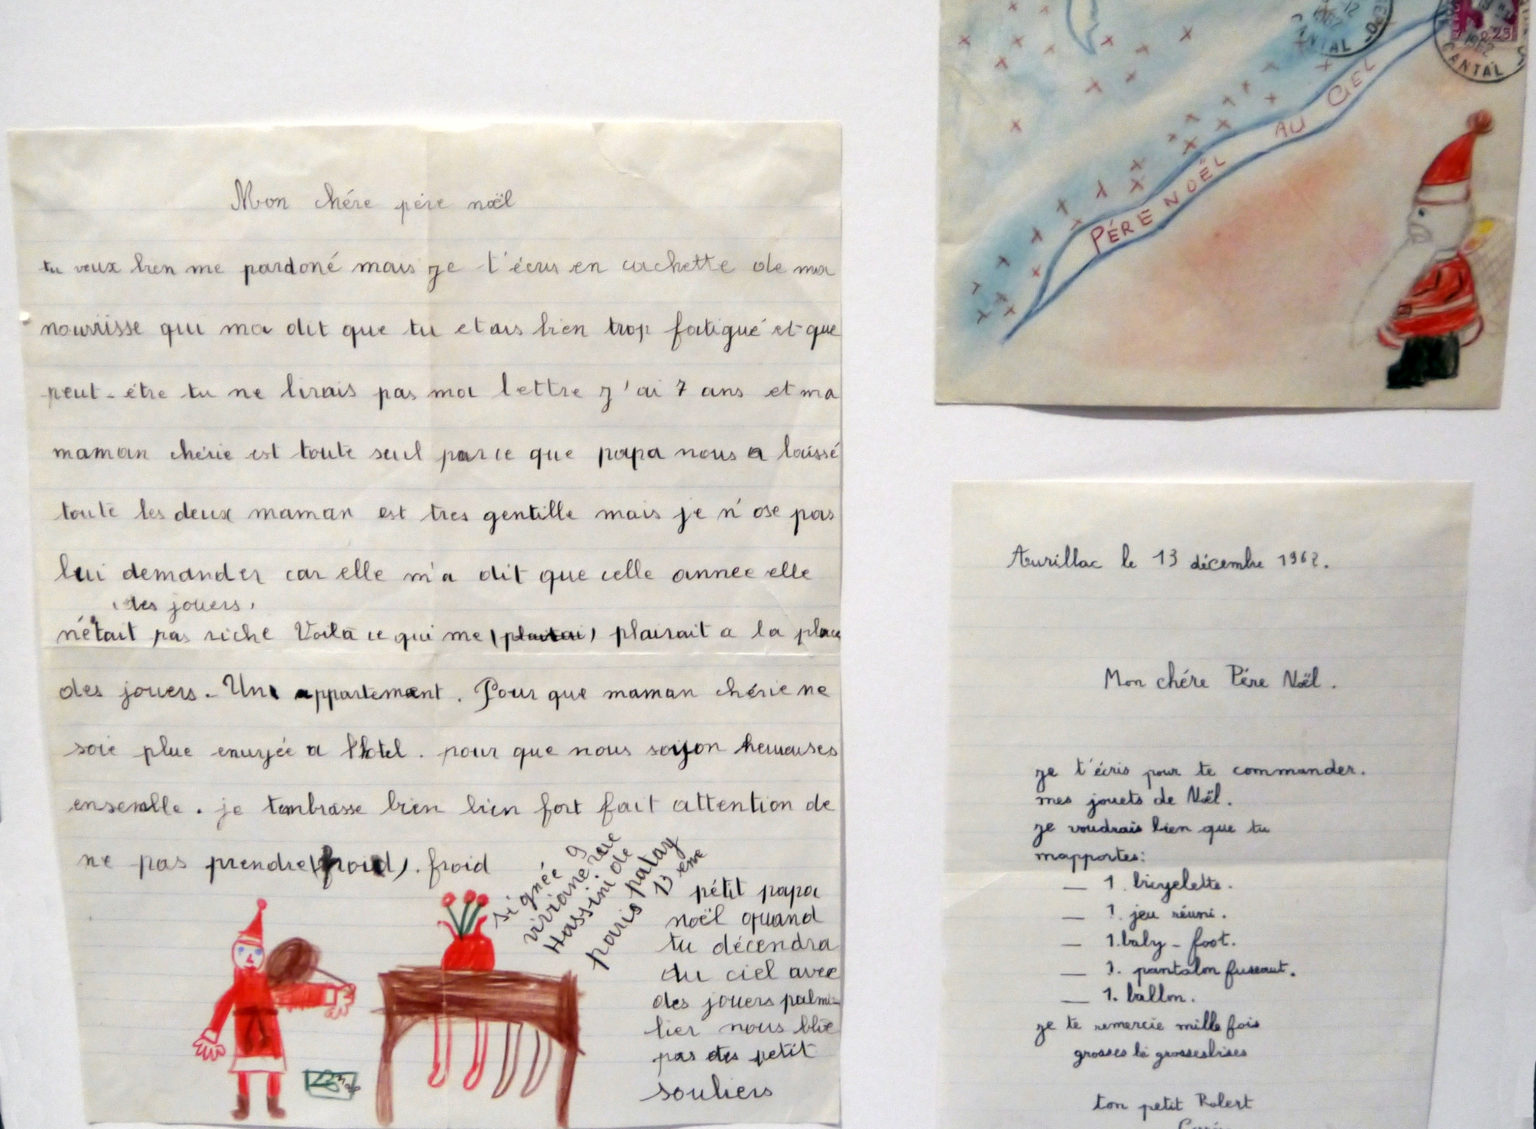 Mon chére pére noël
tu veux bien me pardoné mais je t'écris en cachette de ma
nourrisse qui ma dit que tu etais bien trop fatigué et que
peut-étre tu ne lirais pas ma lettre j'ai 7 ans et ma
maman chérie est toute seul parce que papa nous a laissé
toute les deux maman est tres gentille mais je n'ose pas
lui demander car elle m'a dit que celle annee elle
(des jouers)
n'était pas riche Voila ce qui me plairait a la place
des jouers. Un appartement. Pour que maman chérie ne
soie plue enuyée a l'hotel. pour que nous soyon heureuses
ensemble. je tembrasse bien bien fort fait attention de
ne pas prendre (froid). froid
signée
viviane 9 rue
Hassini de
paris patay
13 eme
pétit papa
noël quand
tu décendra
du ciel avec
des jouers palmi-
lier nous blie
pas des petit
souliers
CANTAL
1962
CANTAL
PÉRE NOËL AU CIEL
Aurillac le 13 décembre 1962.
Mon chére Pére Noël.
je t'écris pour te commander.
mes jouets de Noël.
je voudrais bien que tu
m'apportes:
— 1. bicyclette.
— 1. jeu réuni.
— 1. baby-foot.
— 1. pantalon fuseaut.
— 1. ballon.
je te remercie mille fois
grosses bé grossesbises
ton petit Robert